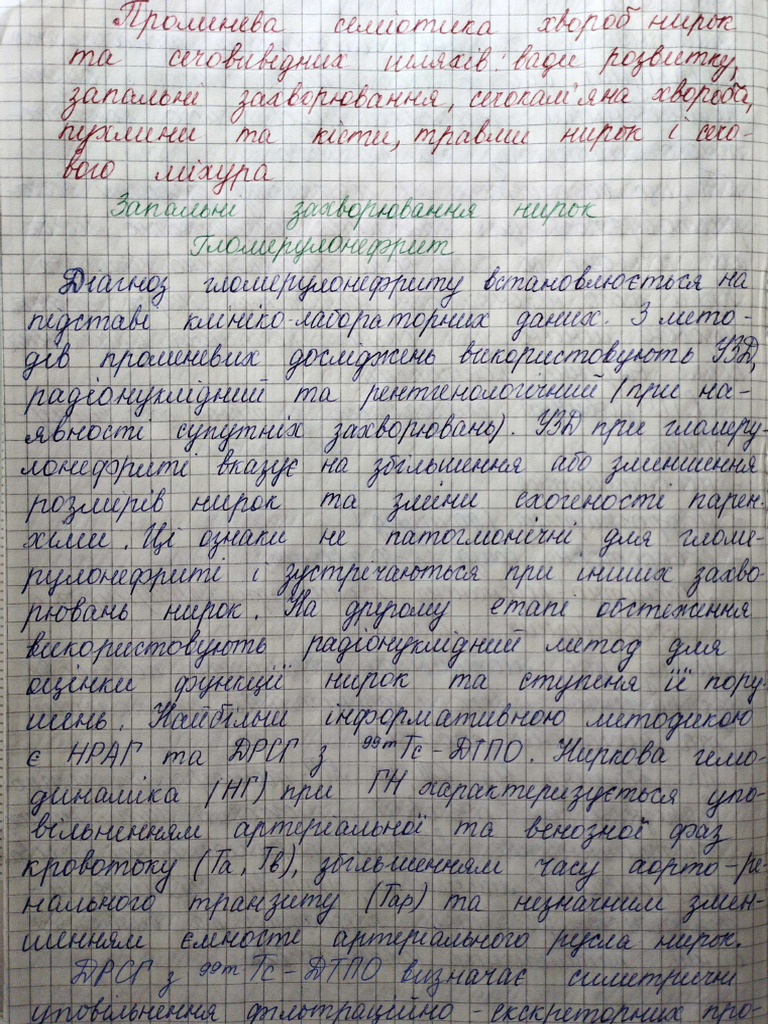 Променева семіотика хвороб нирок
та сечовивідних шляхів: вади розвитку,
запальні захворювання, сечокам'яна хвороба,
пухлини та кісти, травми нирок і сечо-
вого міхура
Запальні захворювання нирок
Гломерулонефрит
Діагноз гломерулонефриту встановлюється на
підставі клініко-лабораторних даних. З мето-
дів променевих досліджень використовують УЗД,
радіонуклідний та рентгенологічний (при на-
явності супутніх захворювань). УЗД при гломеру-
лонефриті вказує на збільшення або зменшення
розмірів нирок та зміни ехогеності парен-
хіми. Ці ознаки не патогмонічні для гломе-
рулонефриті і зустрічаються при інших захво-
рювань нирок. На другому етапі обстеження
використовують радіонуклідний метод для
оцінки функції нирок та ступеня її пору-
шень. Найбільш інформативною методикою
є НРАГ та ДРСГ з 99mTc-ДТПО. Ниркова гемо-
динаміка (НГ) при ГН характеризується упо-
вільненням артеріальної та венозної фаз
кровотоку (Та, Тв), збільшенням часу аорто-ре-
нального транзиту (Тар) та незначним змен-
шенням ємності артеріального русла нирок.
ДРСГ з 99mTc-ДТПО визначає симетричні
уповільнення фільтраційно-екскреторних про-